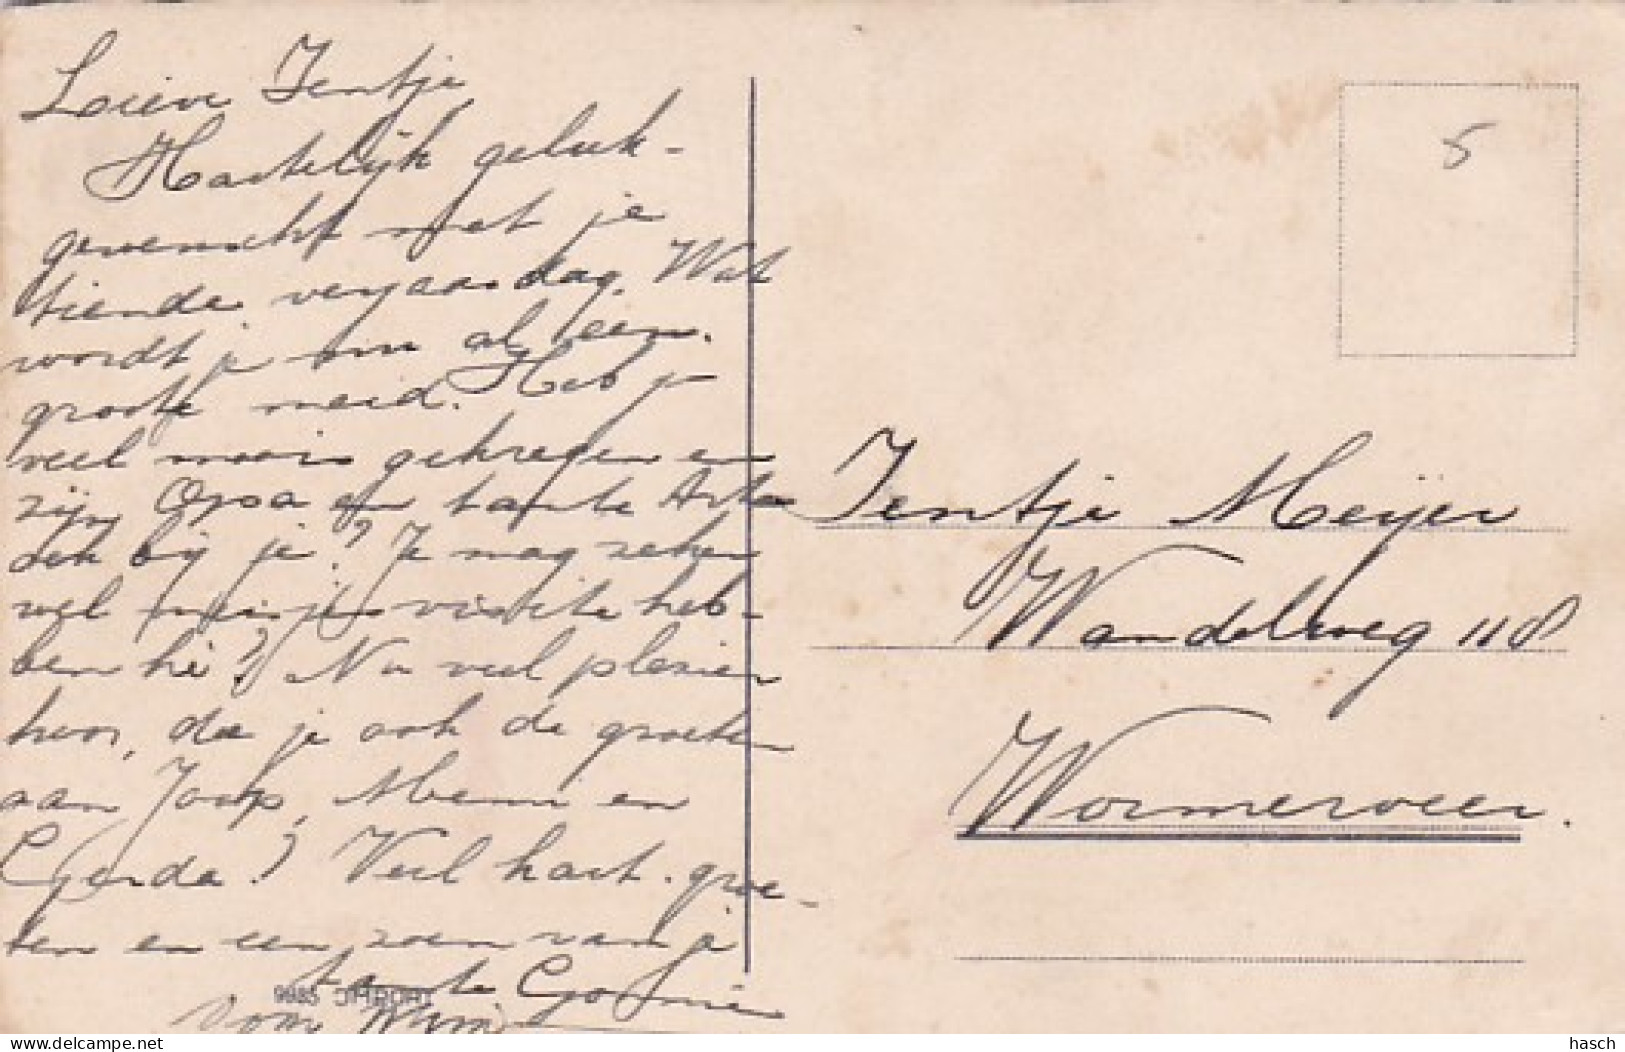 Lieve Jentje
Hartelijk geluk-
gewenscht met je
tiende verjaardag. Wat
wordt je om al een
groote meid. Heb je
veel moois gekregen en
zijn Opa en tante
ook bij je? Je mag zeker
wel meisjes visite heb-
ben hè? Nu veel plezier
hoor, doe je ook de groeten
aan Joop, Memi en
Gerda? Veel hart. groe-
ten en een zoen van je
tante
oom Wim
5
Jentje Meijer
Wandelweg 118
Wormerveer.
www.delcampe.net
hasch